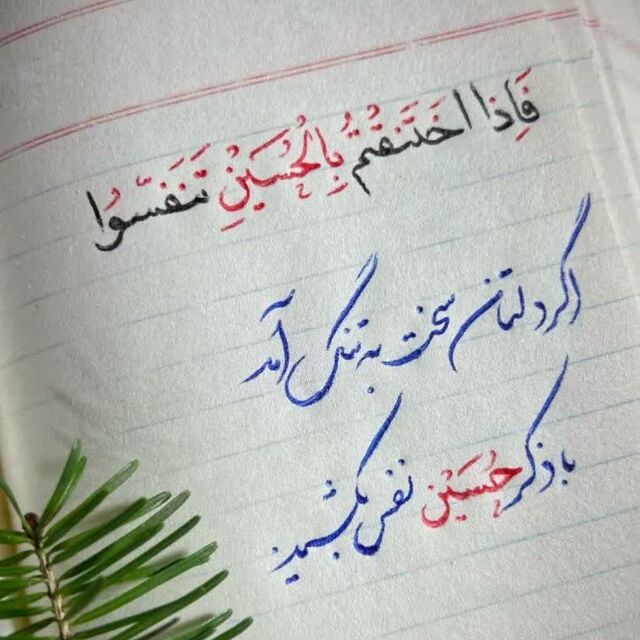 فَاِذا اختَنَقتُمْ بِالْحُسَیْنِ تَنَفَسّوُا
اگر دلتان سخت به تنگ آمد
با ذکر حُسَیْن نفس بکشید